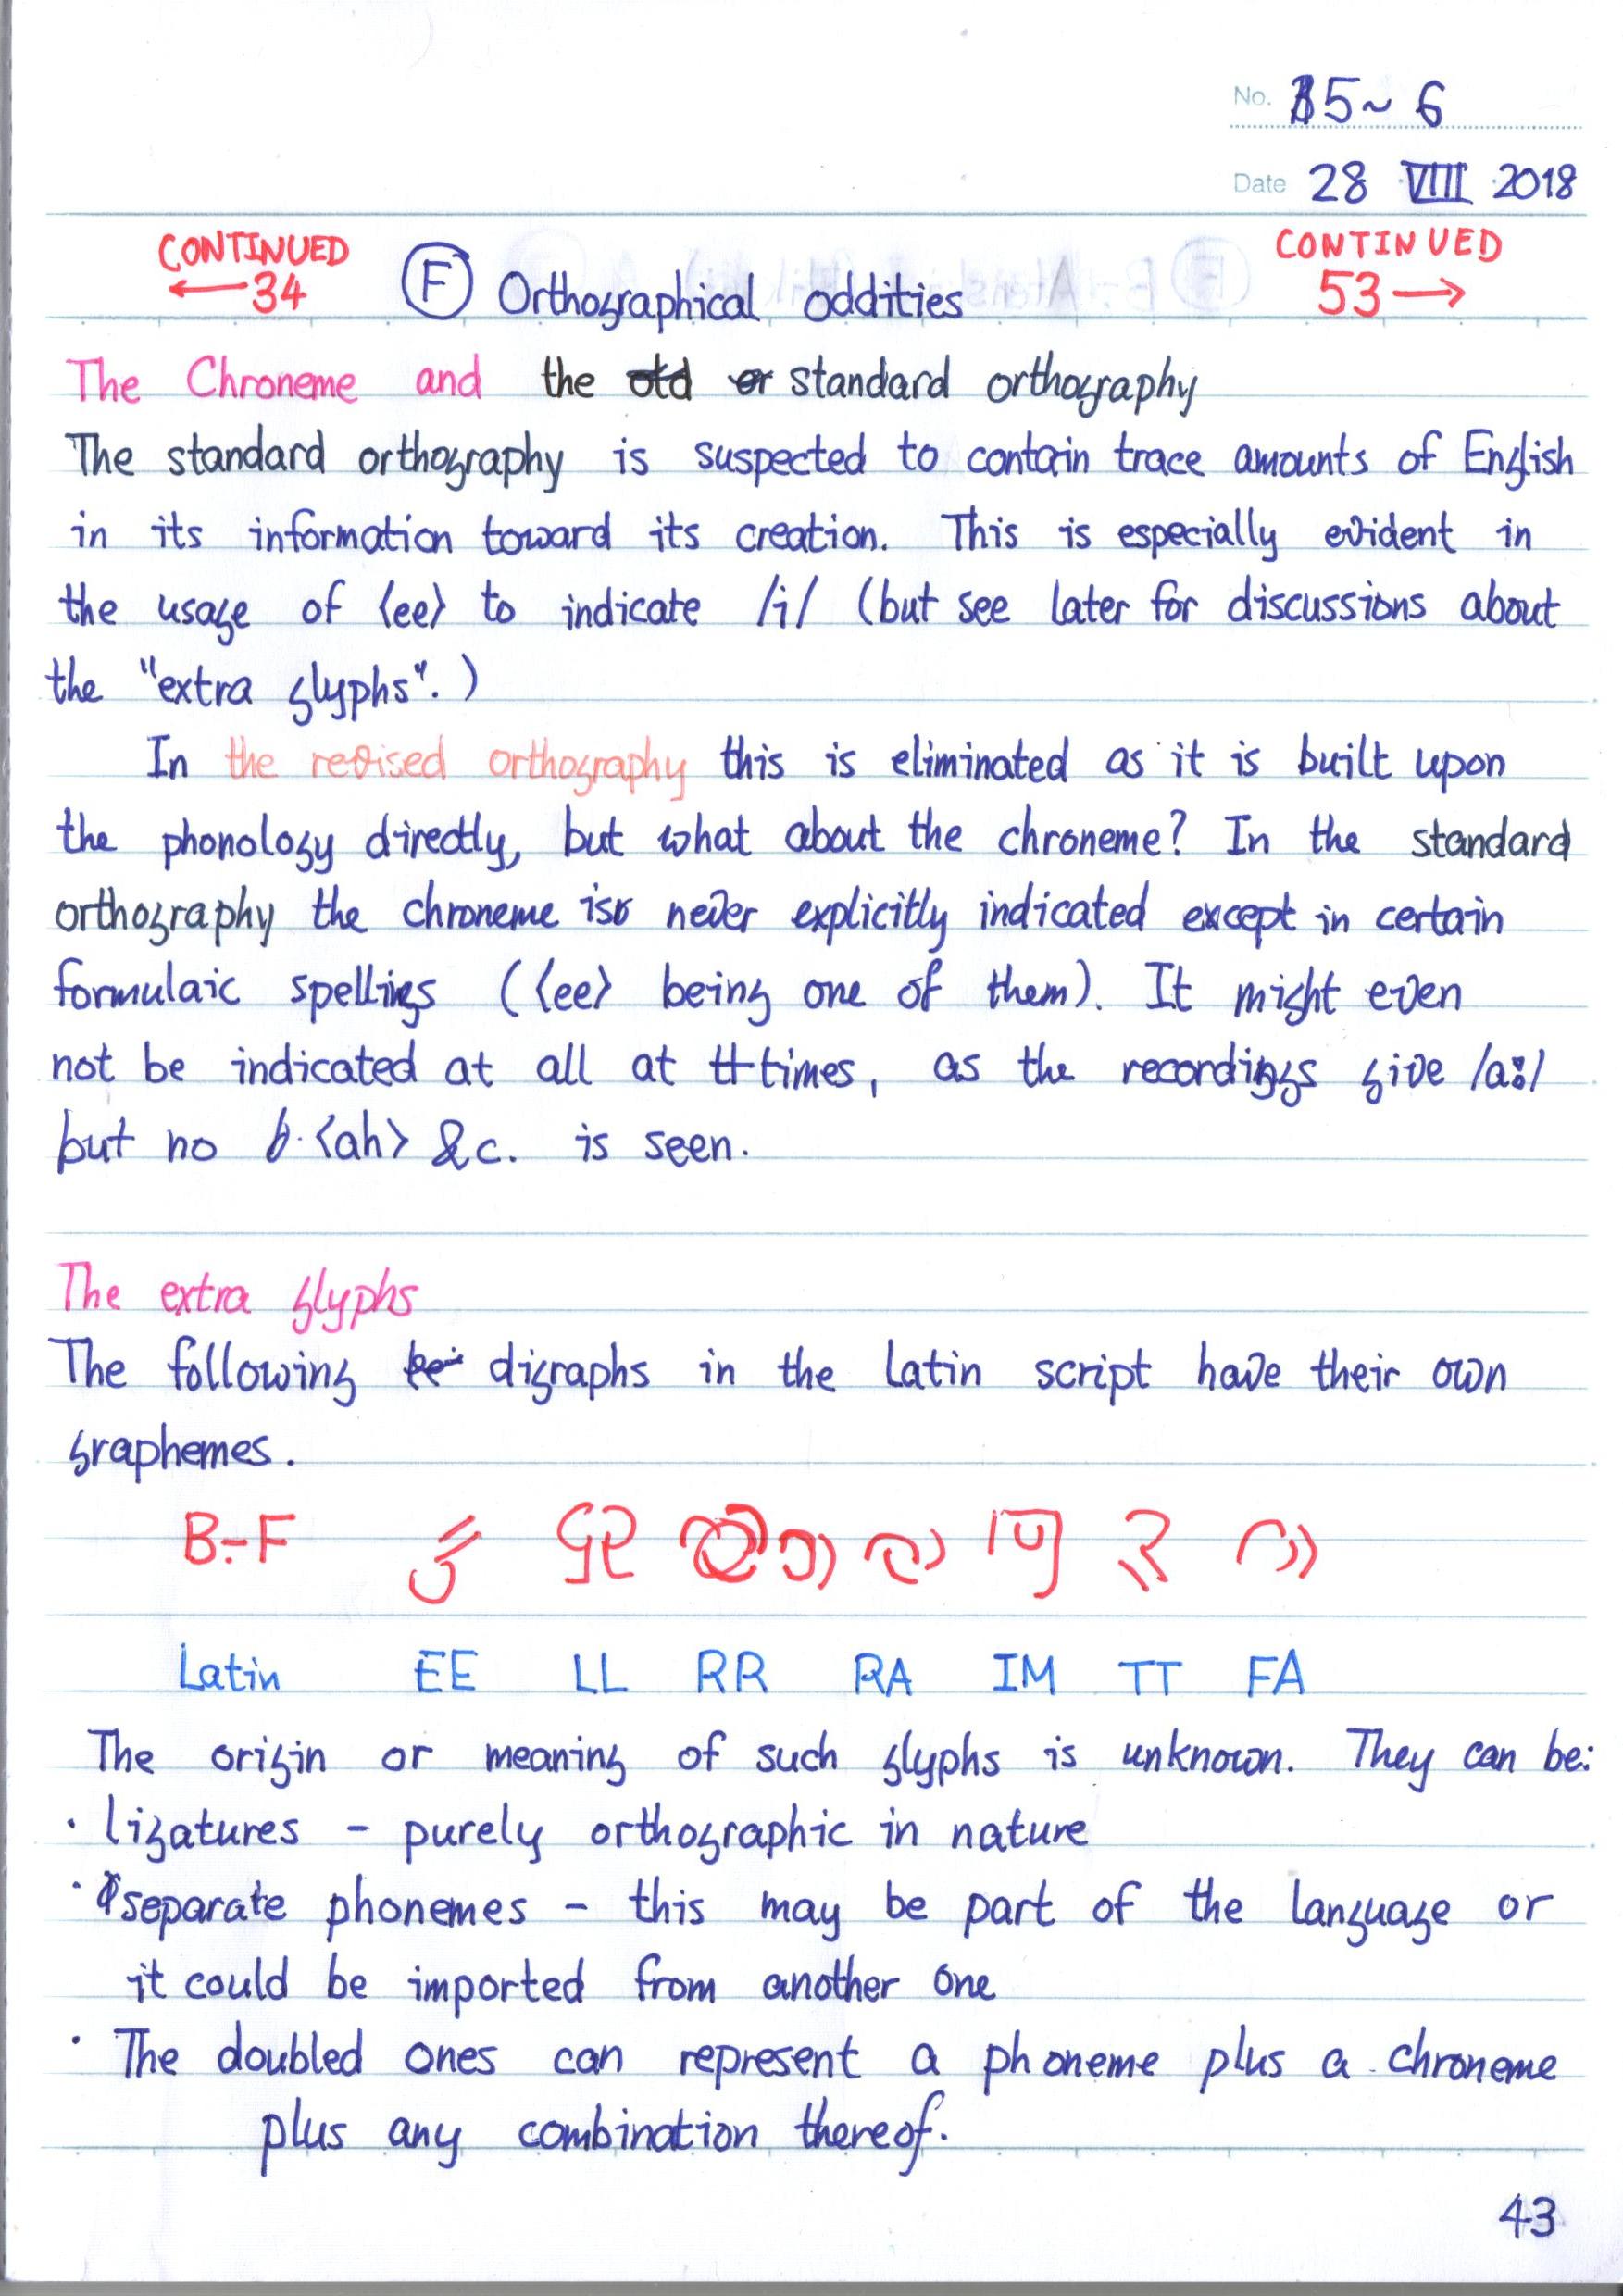 No. 15~6
Date 28 VIII 2018
CONTINUED
←34
F Orthographical oddities
CONTINUED
53→
The Chroneme and the old or standard orthography
The standard orthography is suspected to contain trace amounts of English
in its information toward its creation. This is especially evident in
the usage of ⟨ee⟩ to indicate /i/ (but see later for discussions about
the "extra glyphs".)
In the revised orthography this is eliminated as it is built upon
the phonology directly, but what about the chroneme? In the standard
orthography the chroneme is never explicitly indicated except in certain
formulaic spellings (⟨ee⟩ being one of them). It might even
not be indicated at all at times, as the recordings give /aː/
but no ⟨ah⟩ &c. is seen.
The extra glyphs
The following digraphs in the Latin script have their own
graphemes.
B÷F
Latin EE LL RR RA IM TT FA
The origin or meaning of such glyphs is unknown. They can be:
· ligatures – purely orthographic in nature
· separate phonemes – this may be part of the language or
it could be imported from another one
· The doubled ones can represent a phoneme plus a chroneme
plus any combination thereof.
43